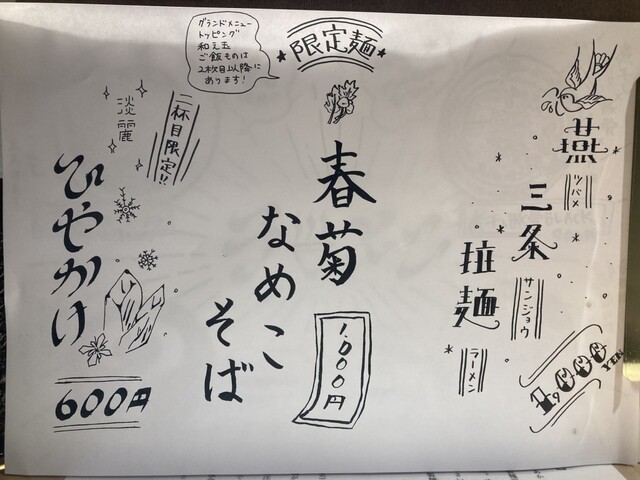 限定麺
グランドメニュー
トッピング
和え玉
ご飯ものは
2枚目以降に
あります!
燕
ツバメ
三条
サンジョウ
拉麺
ラーメン
1,000 YEN
春菊
なめこ
そば
1,000円
二杯目限定!!
淡麗
ひやかけ
600円